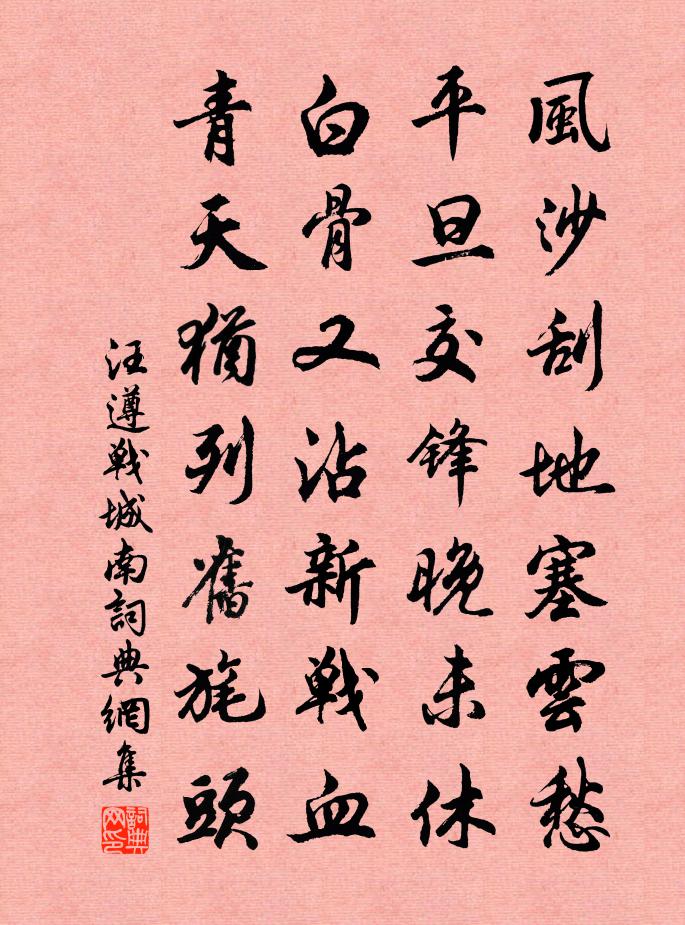 風沙刮地塞雲愁
平旦交锋晚未休
白骨又沾新戰血
青天猶列舊旄頭
汪遵戰城南詞典網集
詞典网印